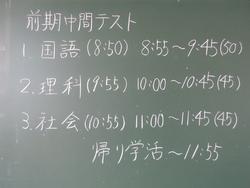 前期中間テスト
1.国語(8:50) 8:55~9:45(50)
2.理科(9:55) 10:00~10:45(45)
3.社会(10:55) 11:00~11:45(45)
帰り学活~11:55